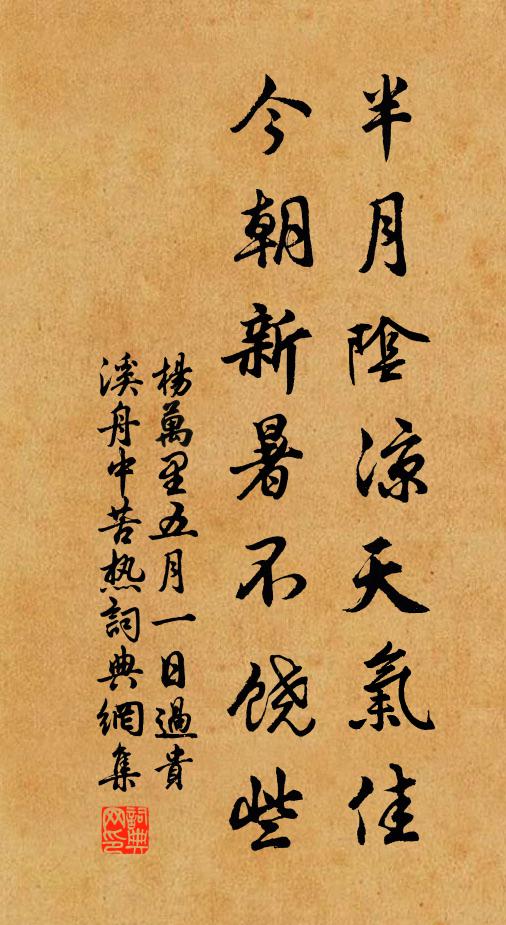 半月陰涼天氣佳
今朝新暑不饶些
楊萬里五月一日過貴
溪舟中苦热詞典網集
詞典网印